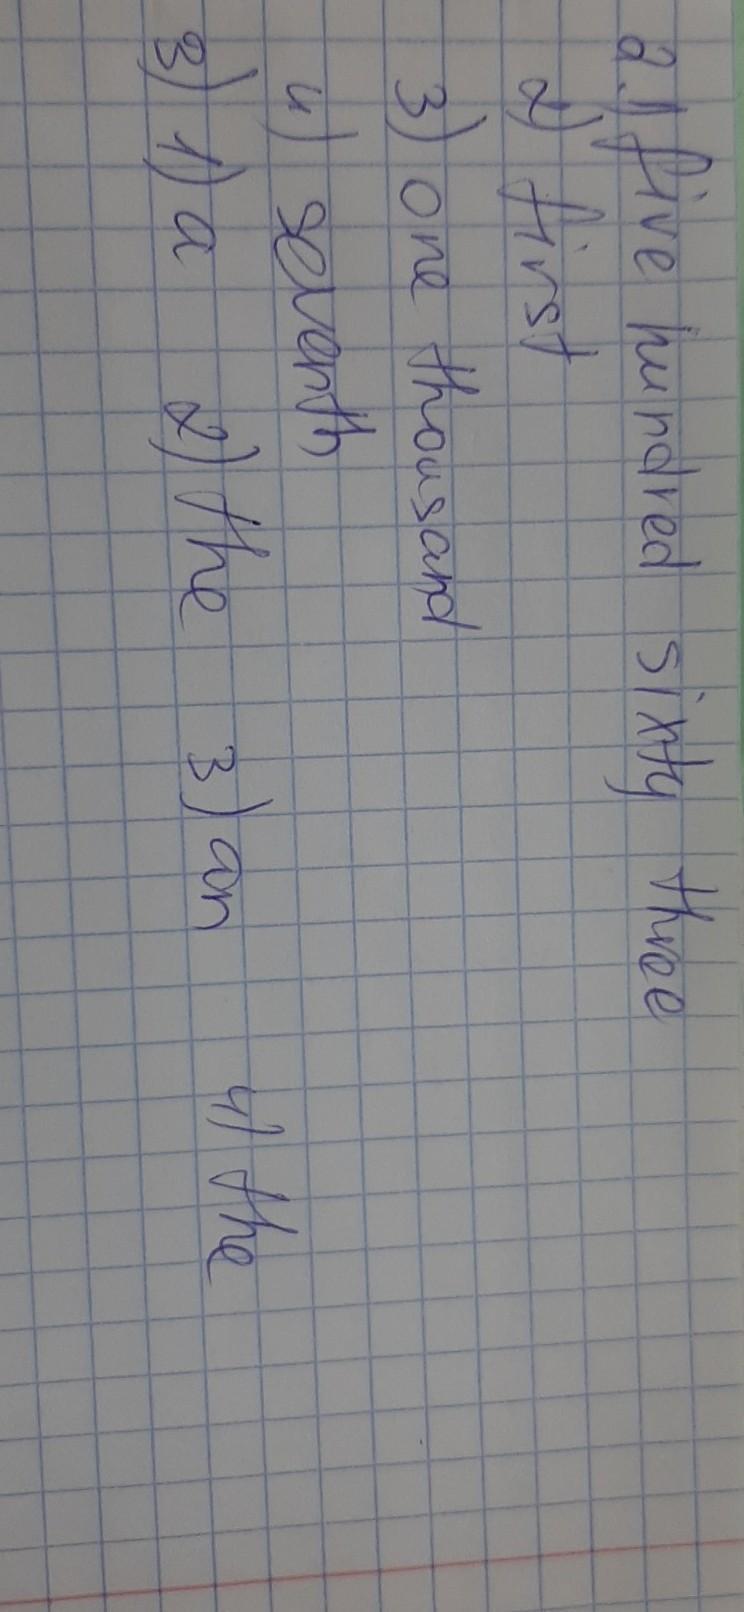 2.) five hundred sixty three
2) first
3) one thousand
4) seventh
3) 1) a 2) the 3) an 4) the